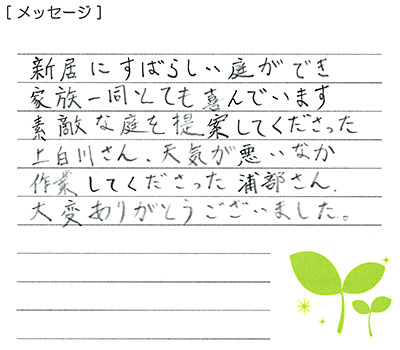 [メッセージ]
新居にすばらしい庭ができ
家族一同とても喜んでいます
素敵な庭を提案してくださった
上白川さん、天気が悪いなか
作業してくださった浦部さん、
大変ありがとうございました。